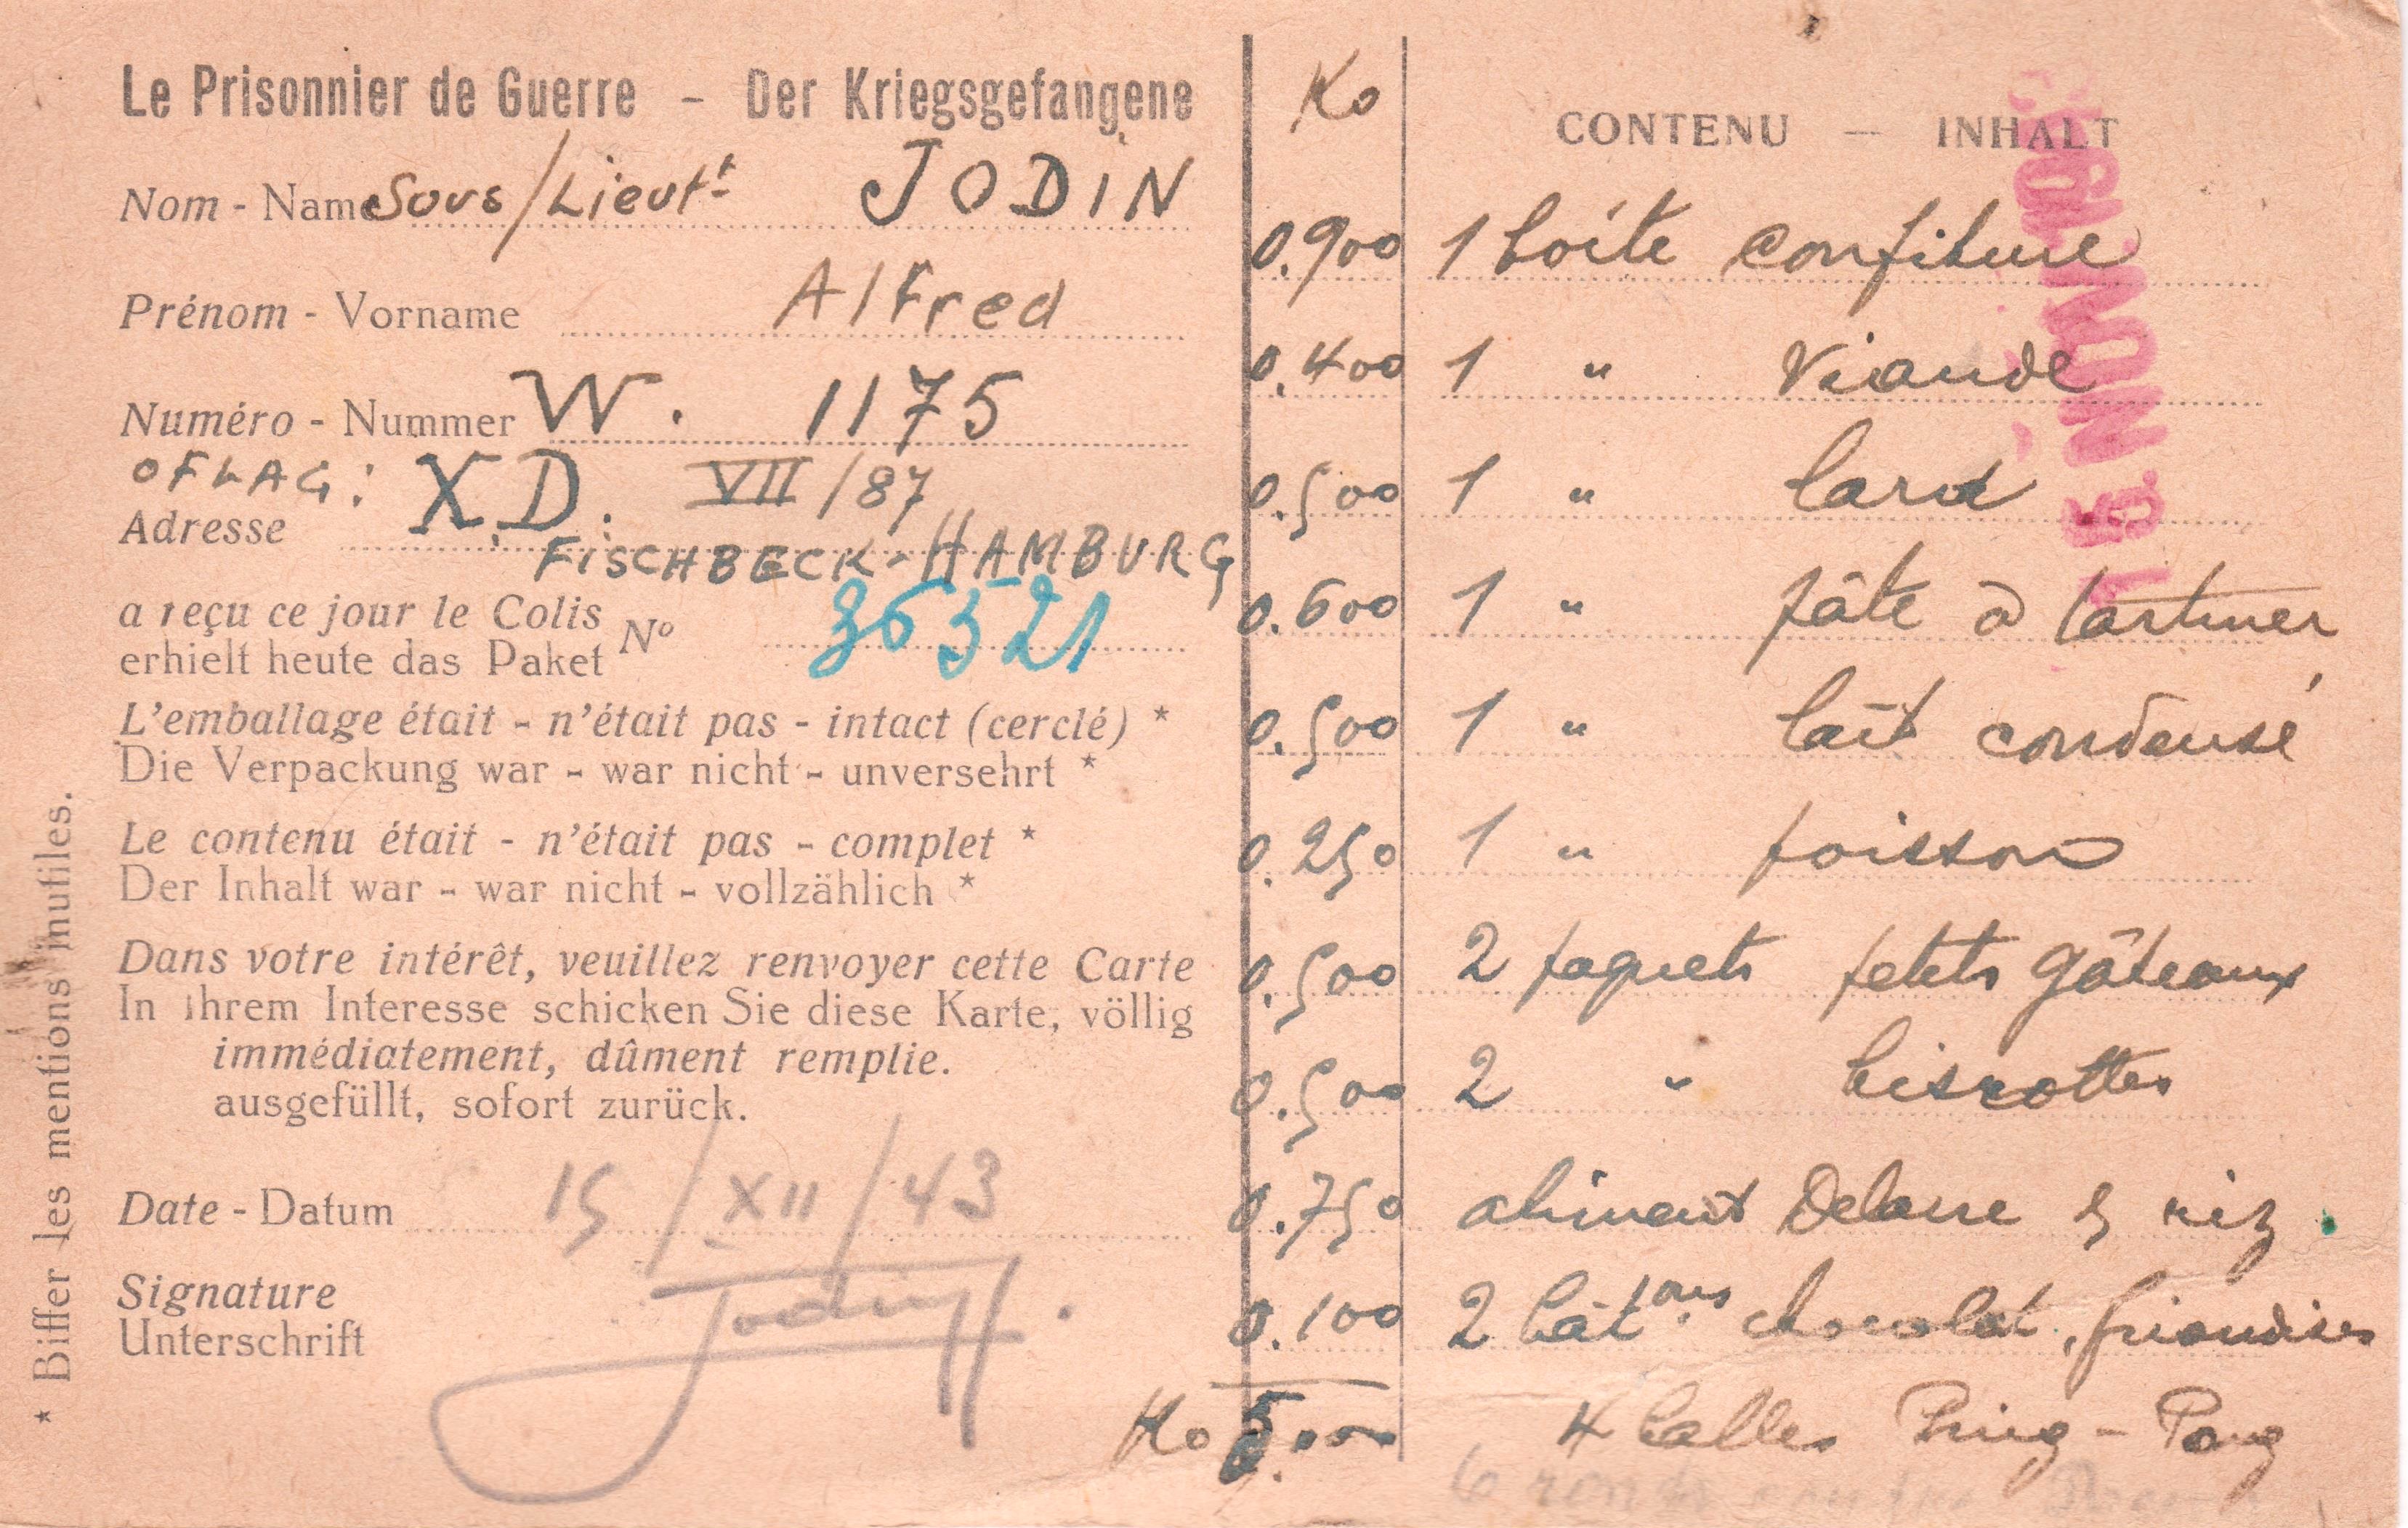 Le Prisonnier de Guerre - Der Kriegsgefangene
Nom - Name Sous/Lieut^t JODIN
Prénom - Vorname Alfred
Numéro - Nummer W. 1175
OFLAG: X.D. VII/87
Adresse FISCHBECK-HAMBURG
a reçu ce jour le Colis
erhielt heute das Paket N° 36521
L'emballage était - n'était pas - intact (cerclé) *
Die Verpackung war - war nicht - unversehrt *
Le contenu était - n'était pas - complet *
Der Inhalt war - war nicht - vollzählich *
Dans votre intérêt, veuillez renvoyer cette Carte
In Ihrem Interesse schicken Sie diese Karte, völlig
immédiatement, dûment remplie.
ausgefüllt, sofort zurück.
Date - Datum 15/XII/43
Signature Jodin
Unterschrift
* Biffer les mentions inutiles.
Ko CONTENU — INHALT
0.900 1 boîte confiture
0.400 1 " viande
0.500 1 " lard
0.600 1 " pâte à tartiner
0.500 1 " lait condensé
0.250 1 " poisson
0.500 2 paquets petits gâteaux
0.500 2 " biscottes
0.750 aliment & riz.
0.100 2 bât^ons chocolat, friandises
Ko 5.000 4 balles Ping-Pong